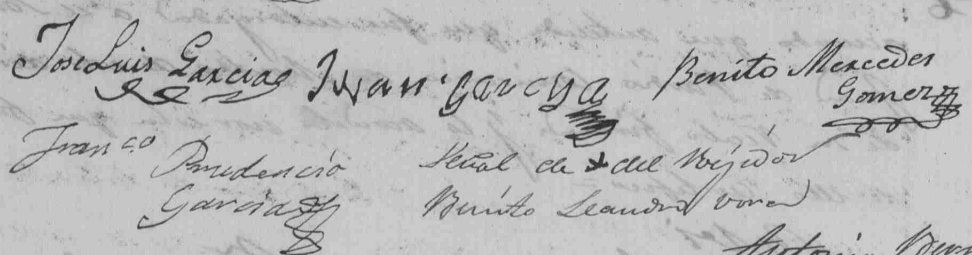 Jose Luis Garcia Juan garcya Benito Mercedes
Gomez
Franco Prudencio Señal de + del Rejidor
Garcia Benito Leandro
Antonio